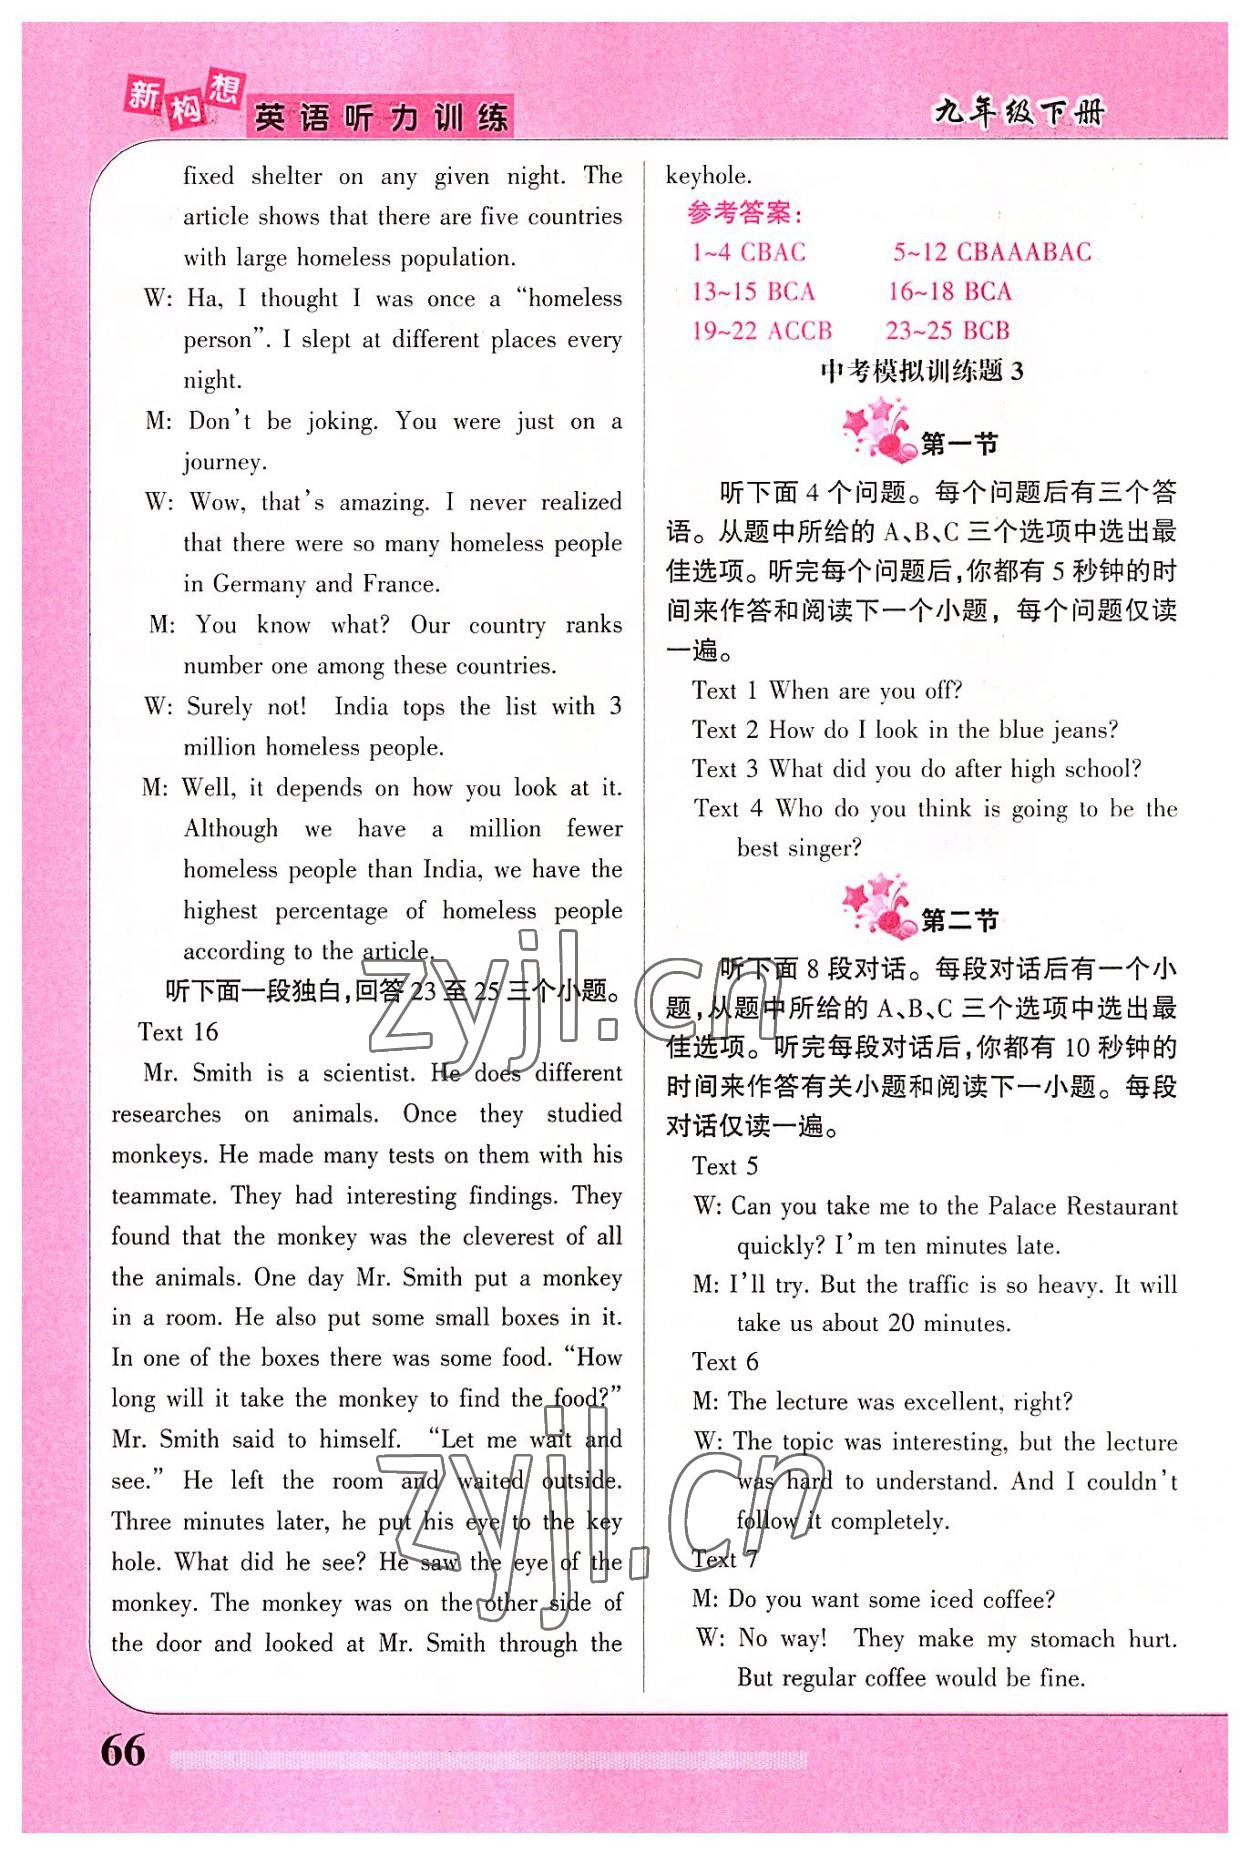 新构想
英语听力训练
九年级下册
fixed shelter on any given night. The
article shows that there are five countries
with large homeless population.
W: Ha, I thought I was once a “homeless
person”. I slept at different places every
night.
M: Don't be joking. You were just on a
journey.
W: Wow, that's amazing. I never realized
that there were so many homeless people
in Germany and France.
M: You know what? Our country ranks
number one among these countries.
W: Surely not! India tops the list with 3
million homeless people.
M: Well, it depends on how you look at it.
Although we have a million fewer
homeless people than India, we have the
highest percentage of homeless people
according to the article.
听下面一段独白,回答 23 至 25 三个小题。
Text 16
Mr. Smith is a scientist. He does different
researches on animals. Once they studied
monkeys. He made many tests on them with his
teammate. They had interesting findings. They
found that the monkey was the cleverest of all
the animals. One day Mr. Smith put a monkey
in a room. He also put some small boxes in it.
In one of the boxes there was some food. “How
long will it take the monkey to find the food?”
Mr. Smith said to himself. “Let me wait and
see.” He left the room and waited outside.
Three minutes later, he put his eye to the key
hole. What did he see? He saw the eye of the
monkey. The monkey was on the other side of
the door and looked at Mr. Smith through the
keyhole.
参考答案:
1~4 CBAC 5~12 CBAAABAC
13~15 BCA 16~18 BCA
19~22 ACCB 23~25 BCB
中考模拟训练题 3
第一节
听下面 4 个问题。每个问题后有三个答
语。从题中所给的 A、B、C 三个选项中选出最
佳选项。听完每个问题后,你都有 5 秒钟的时
间来作答和阅读下一个小题，每个问题仅读
一遍。
Text 1 When are you off?
Text 2 How do I look in the blue jeans?
Text 3 What did you do after high school?
Text 4 Who do you think is going to be the
best singer?
第二节
听下面 8 段对话。每段对话后有一个小
题,从题中所给的 A、B、C 三个选项中选出最
佳选项。听完每段对话后,你都有 10 秒钟的
时间来作答有关小题和阅读下一小题。每段
对话仅读一遍。
Text 5
W: Can you take me to the Palace Restaurant
quickly? I'm ten minutes late.
M: I'll try. But the traffic is so heavy. It will
take us about 20 minutes.
Text 6
M: The lecture was excellent, right?
W: The topic was interesting, but the lecture
was hard to understand. And I couldn't
follow it completely.
Text 7
M: Do you want some iced coffee?
W: No way! They make my stomach hurt.
But regular coffee would be fine.
66
zyjl.cn
zyjl.cn